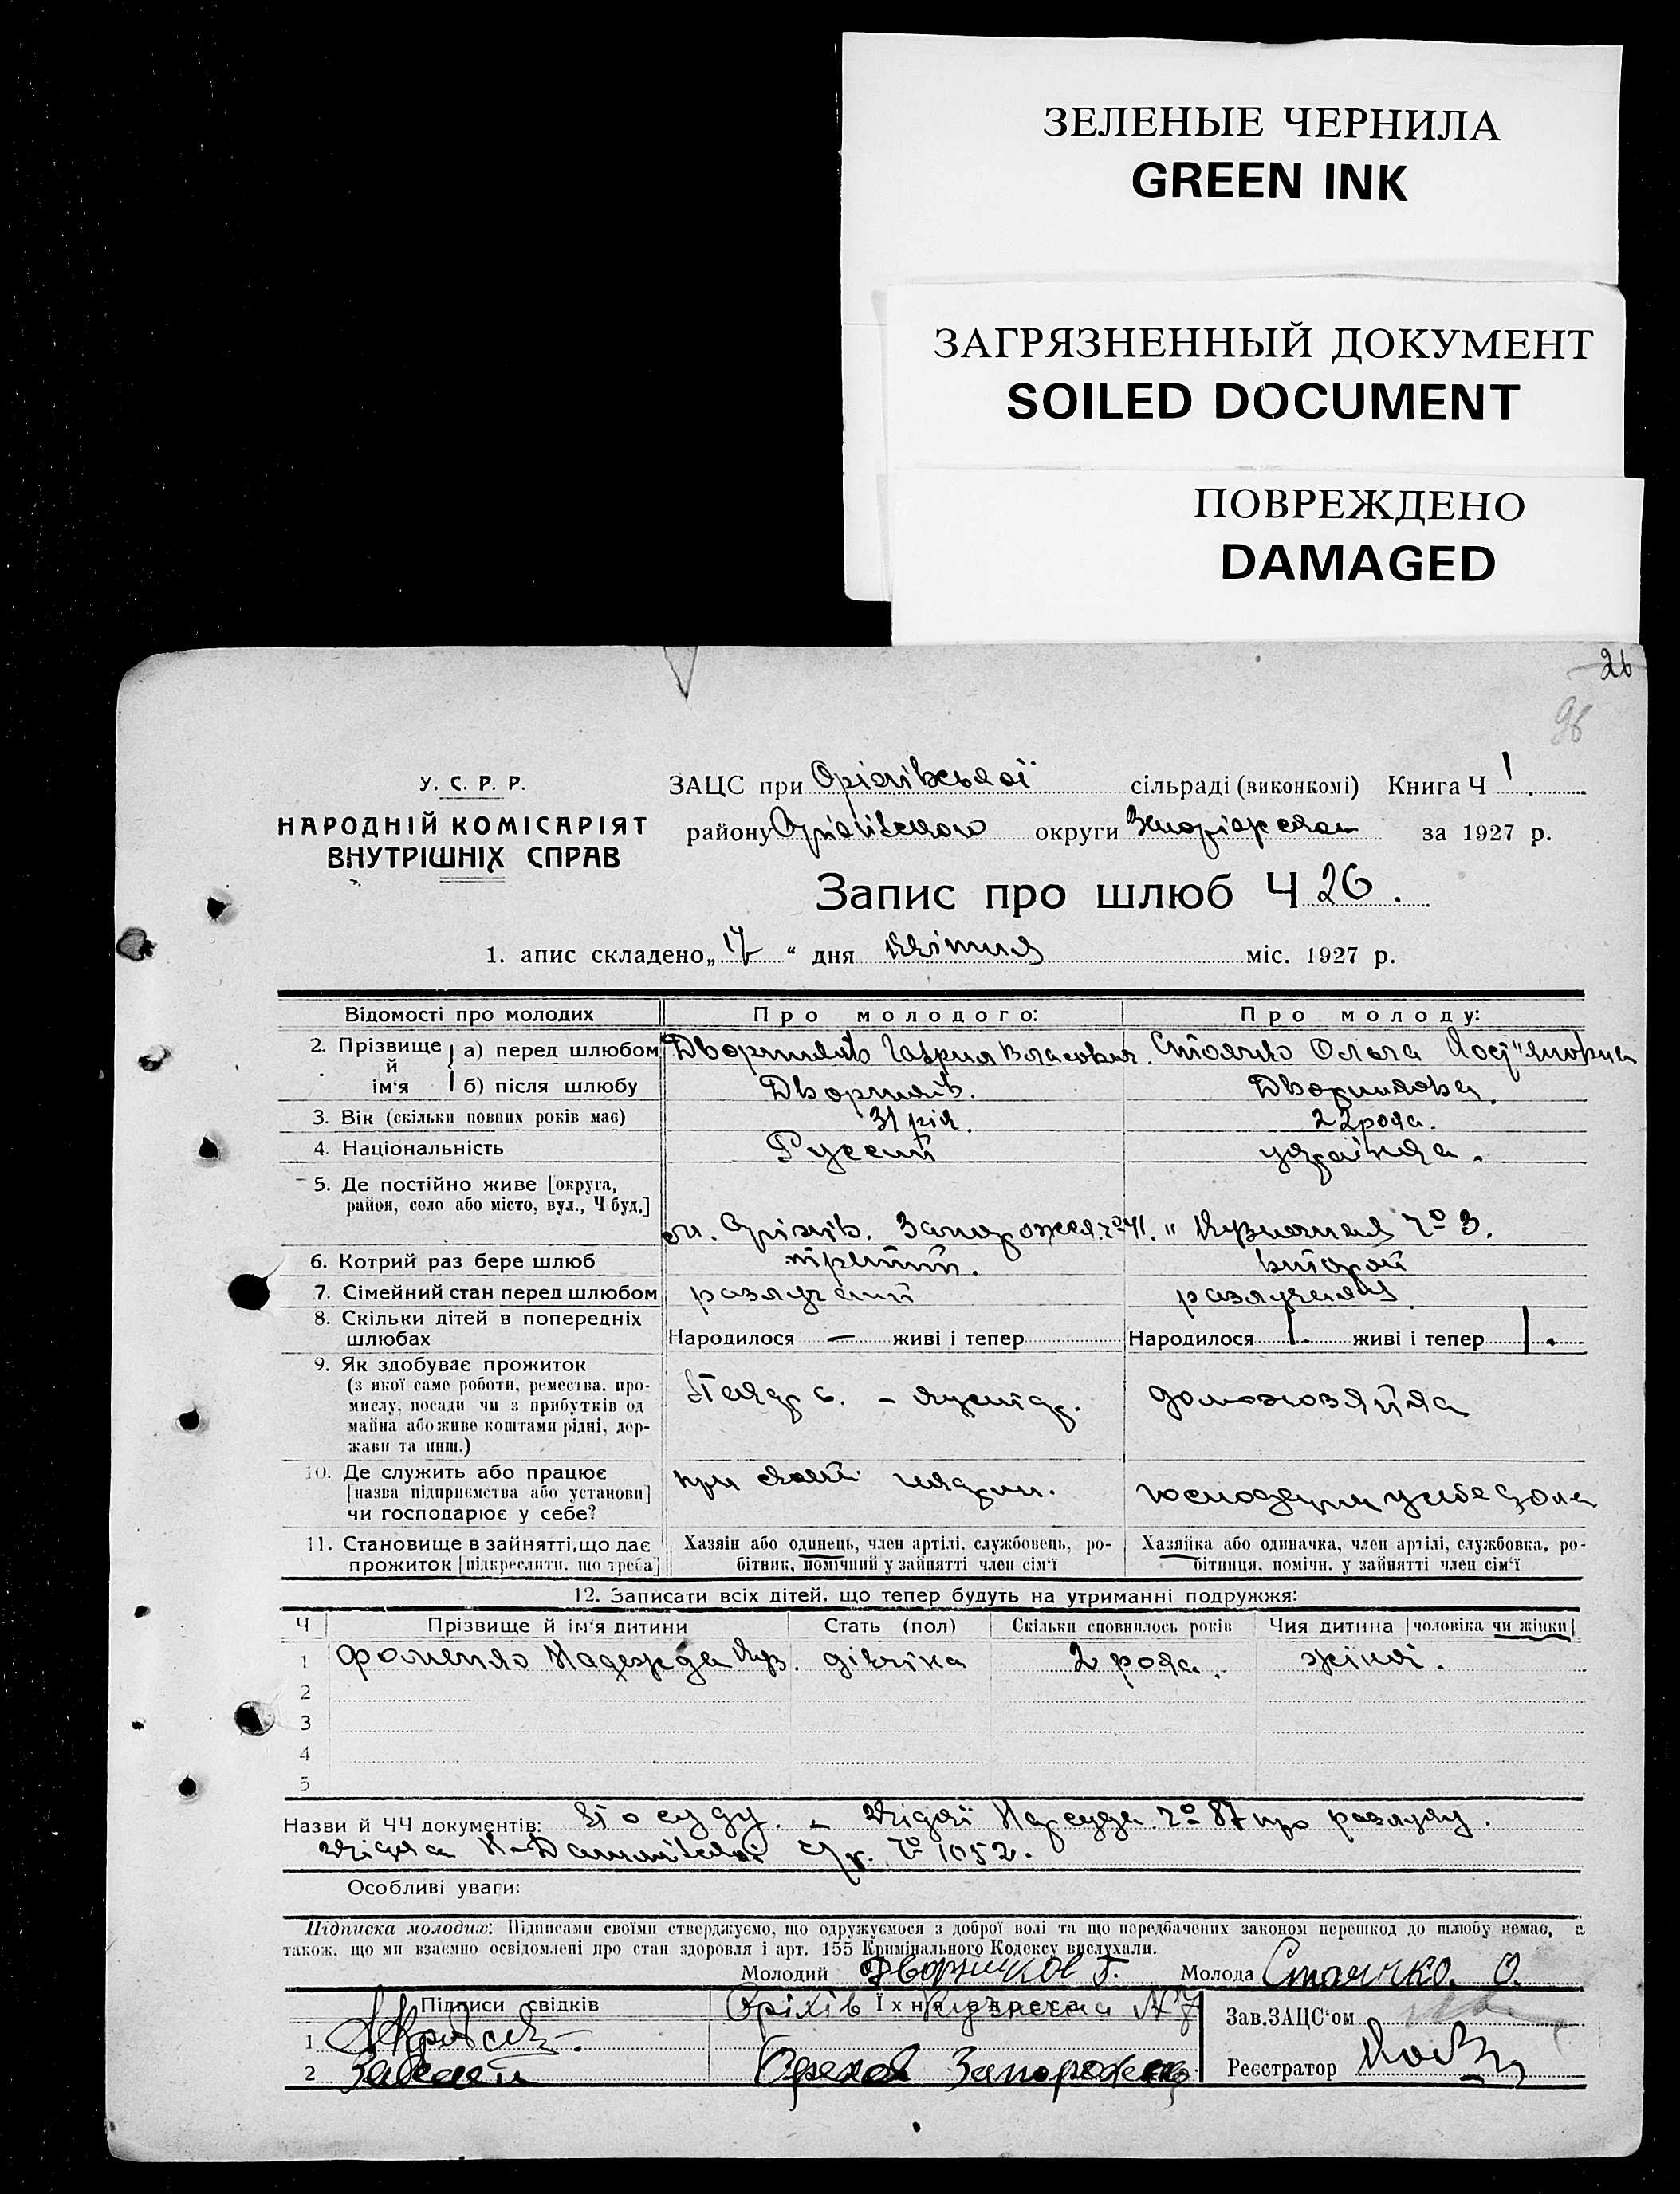 ЗЕЛЕНЫЕ ЧЕРНИЛА
GREEN INK
ЗАГРЯЗНЕННЫЙ ДОКУМЕНТ
SOILED DOCUMENT
ПОВРЕЖДЕНО
DAMAGED
26
96
У. С. Р. Р.
НАРОДНІЙ КОМІСАРІЯТ
ВНУТРІШНІХ СПРАВ
ЗАЦС при Оріхівської сільраді (виконкомі) Книга Ч 1
району Оріхівського округи за 1927 р.
Запис про шлюб Ч 26.
1. апис складено „17“ дня квітня міс. 1927 р.
Відомості про молодих Про молодого: Про молоду:
2. Прізвище й ім'я а) перед шлюбом Гаврил Власович. Стоячко Ольга
б) після шлюбу
3. Вік (скільки повних років має) 31 рік. 22 рока.
4. Національність Руский українка.
5. Де постійно живе [округа,
район, село або місто, вул., Ч буд.]
м. Оріхів. Запорожск. № 41. " Кузнечная № 3.
6. Котрий раз бере шлюб третий. второй
7. Сімейний стан перед шлюбом разлучений разлучена
8. Скільки дітей в попередніх
шлюбах Народилося — живі і тепер Народилося 1. живі і тепер 1.
9. Як здобуває прожиток
(з якої саме роботи, ремества, про-
мислу, посади чи з прибутків од
майна або живе коштами рідні, дер-
жави та инш.)
Столяр. – кустар. домохозяйка
10. Де служить або працює
[назва підприємства або установи]
чи господарює у себе?
при своїй у себе дома
11. Становище в зайнятті, що дає
прожиток [підкреслити, що треба]
Хазяін або одинець, член артілі, службовець, ро-
бітник, помічний у зайнятті член сім'ї
Хазяйка або одиначка, член артілі, службовка, ро-
бітниця, помічн. у зайнятті член сім'ї
12. Записати всіх дітей, що тепер будуть на утриманні подружжя:
Ч Прізвище й ім'я дитини Стать (пол) Скільки сповнилось років Чия дитина [чоловіка чи жінки]
1 Фоменко Надежда Куз. дівчина 2 рока. жінкі.
2
3
4
5
Назви й ЧЧ документів: суду. – Нарсуда № 87 про разлуку.
№ 1052.
Особливі уваги:
Підписка молодих: Підписами своїми стверджуємо, що одружуємося з доброї волі та що передбачених законом перешкод до шлюбу немає, а
також, що ми взаємно освідомлені про стан здоровля і арт. 155 Кримінального Кодексу вислухали.
Молодий Г. Молода Стоячко. О.
Підписи свідків Їхня адреса
Оріхів Кузнечна № 7
1
2 Орехов
Зав. ЗАЦС'ом
Реєстратор